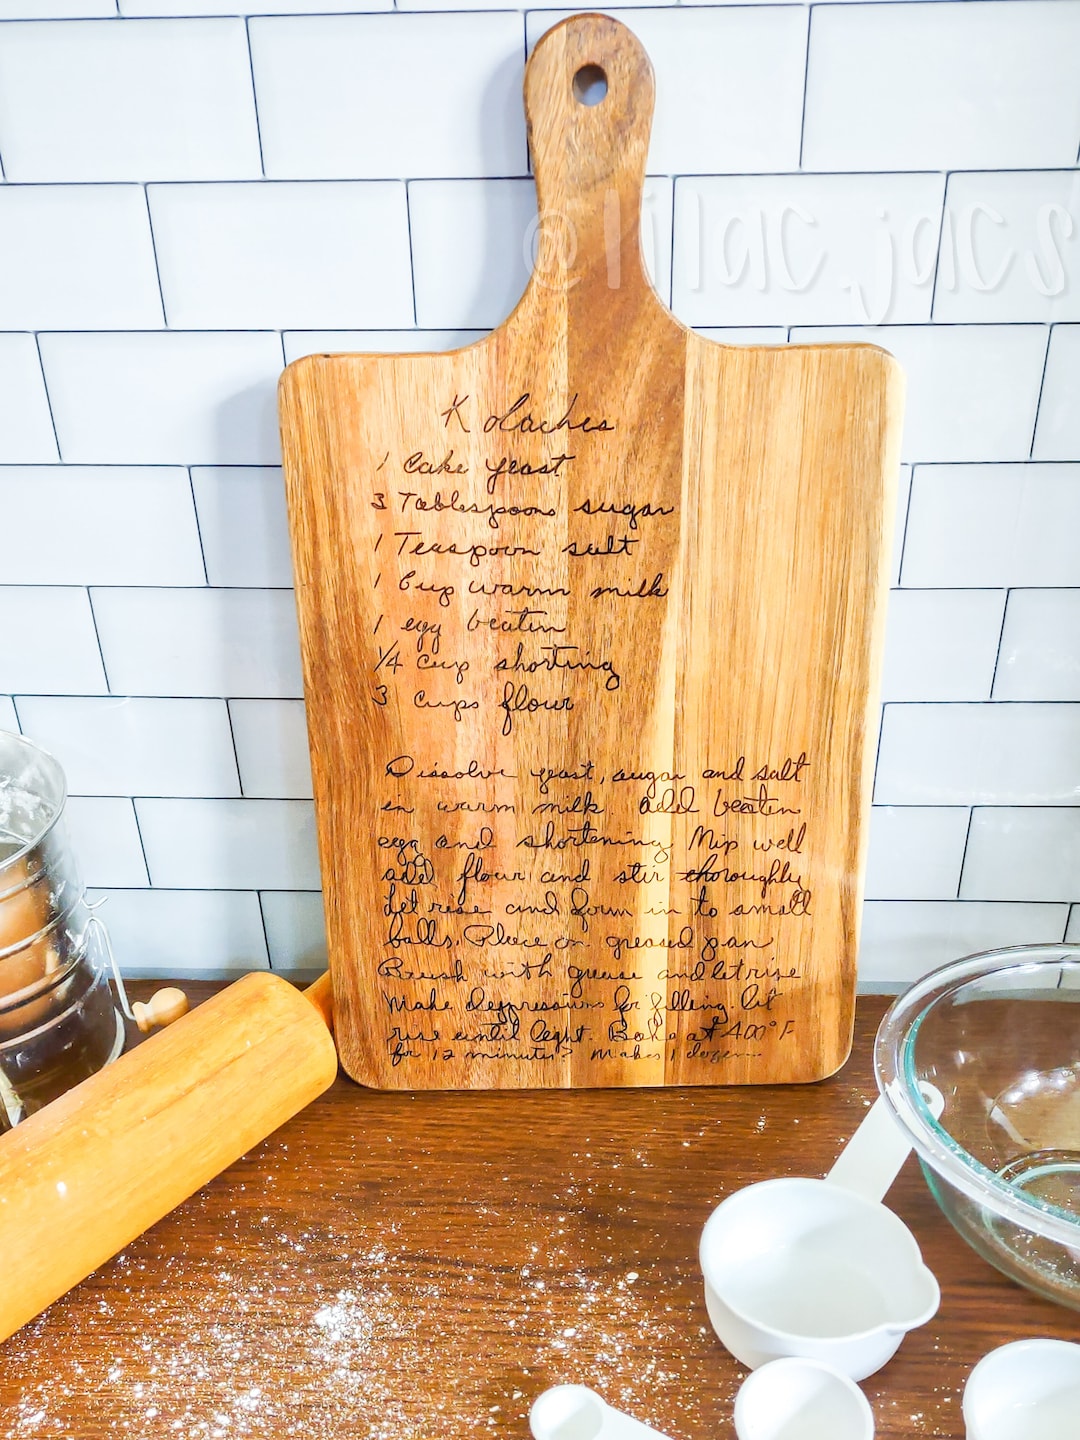 @lilac.jacs
Kolaches
1 Cake yeast
3 Tablespoons sugar
1 Teaspoon salt
1 Cup warm milk
1 egg beaten
1/4 cup shorting
3 cups flour
Dissolve yeast, sugar and salt
in warm milk. add beaten
egg and shortening Mix well
add flour and stir thoroughly
Let rise and form in to small
balls. Place on greased pan
Brush with grease and let rise
Make depressions for filling. let
rise until light. Bake at 400° F
for 12 minutes? Makes 1 dozen